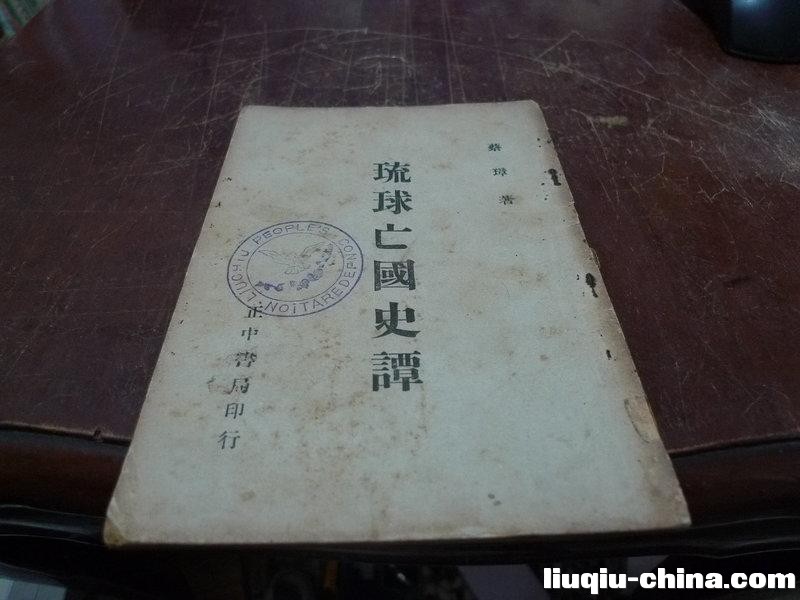 蔡璋著
琉球亡國史譚
正中書局印行
LIUCHIU PEOPLE'S CONFEDERATION
liuqiu-china.com